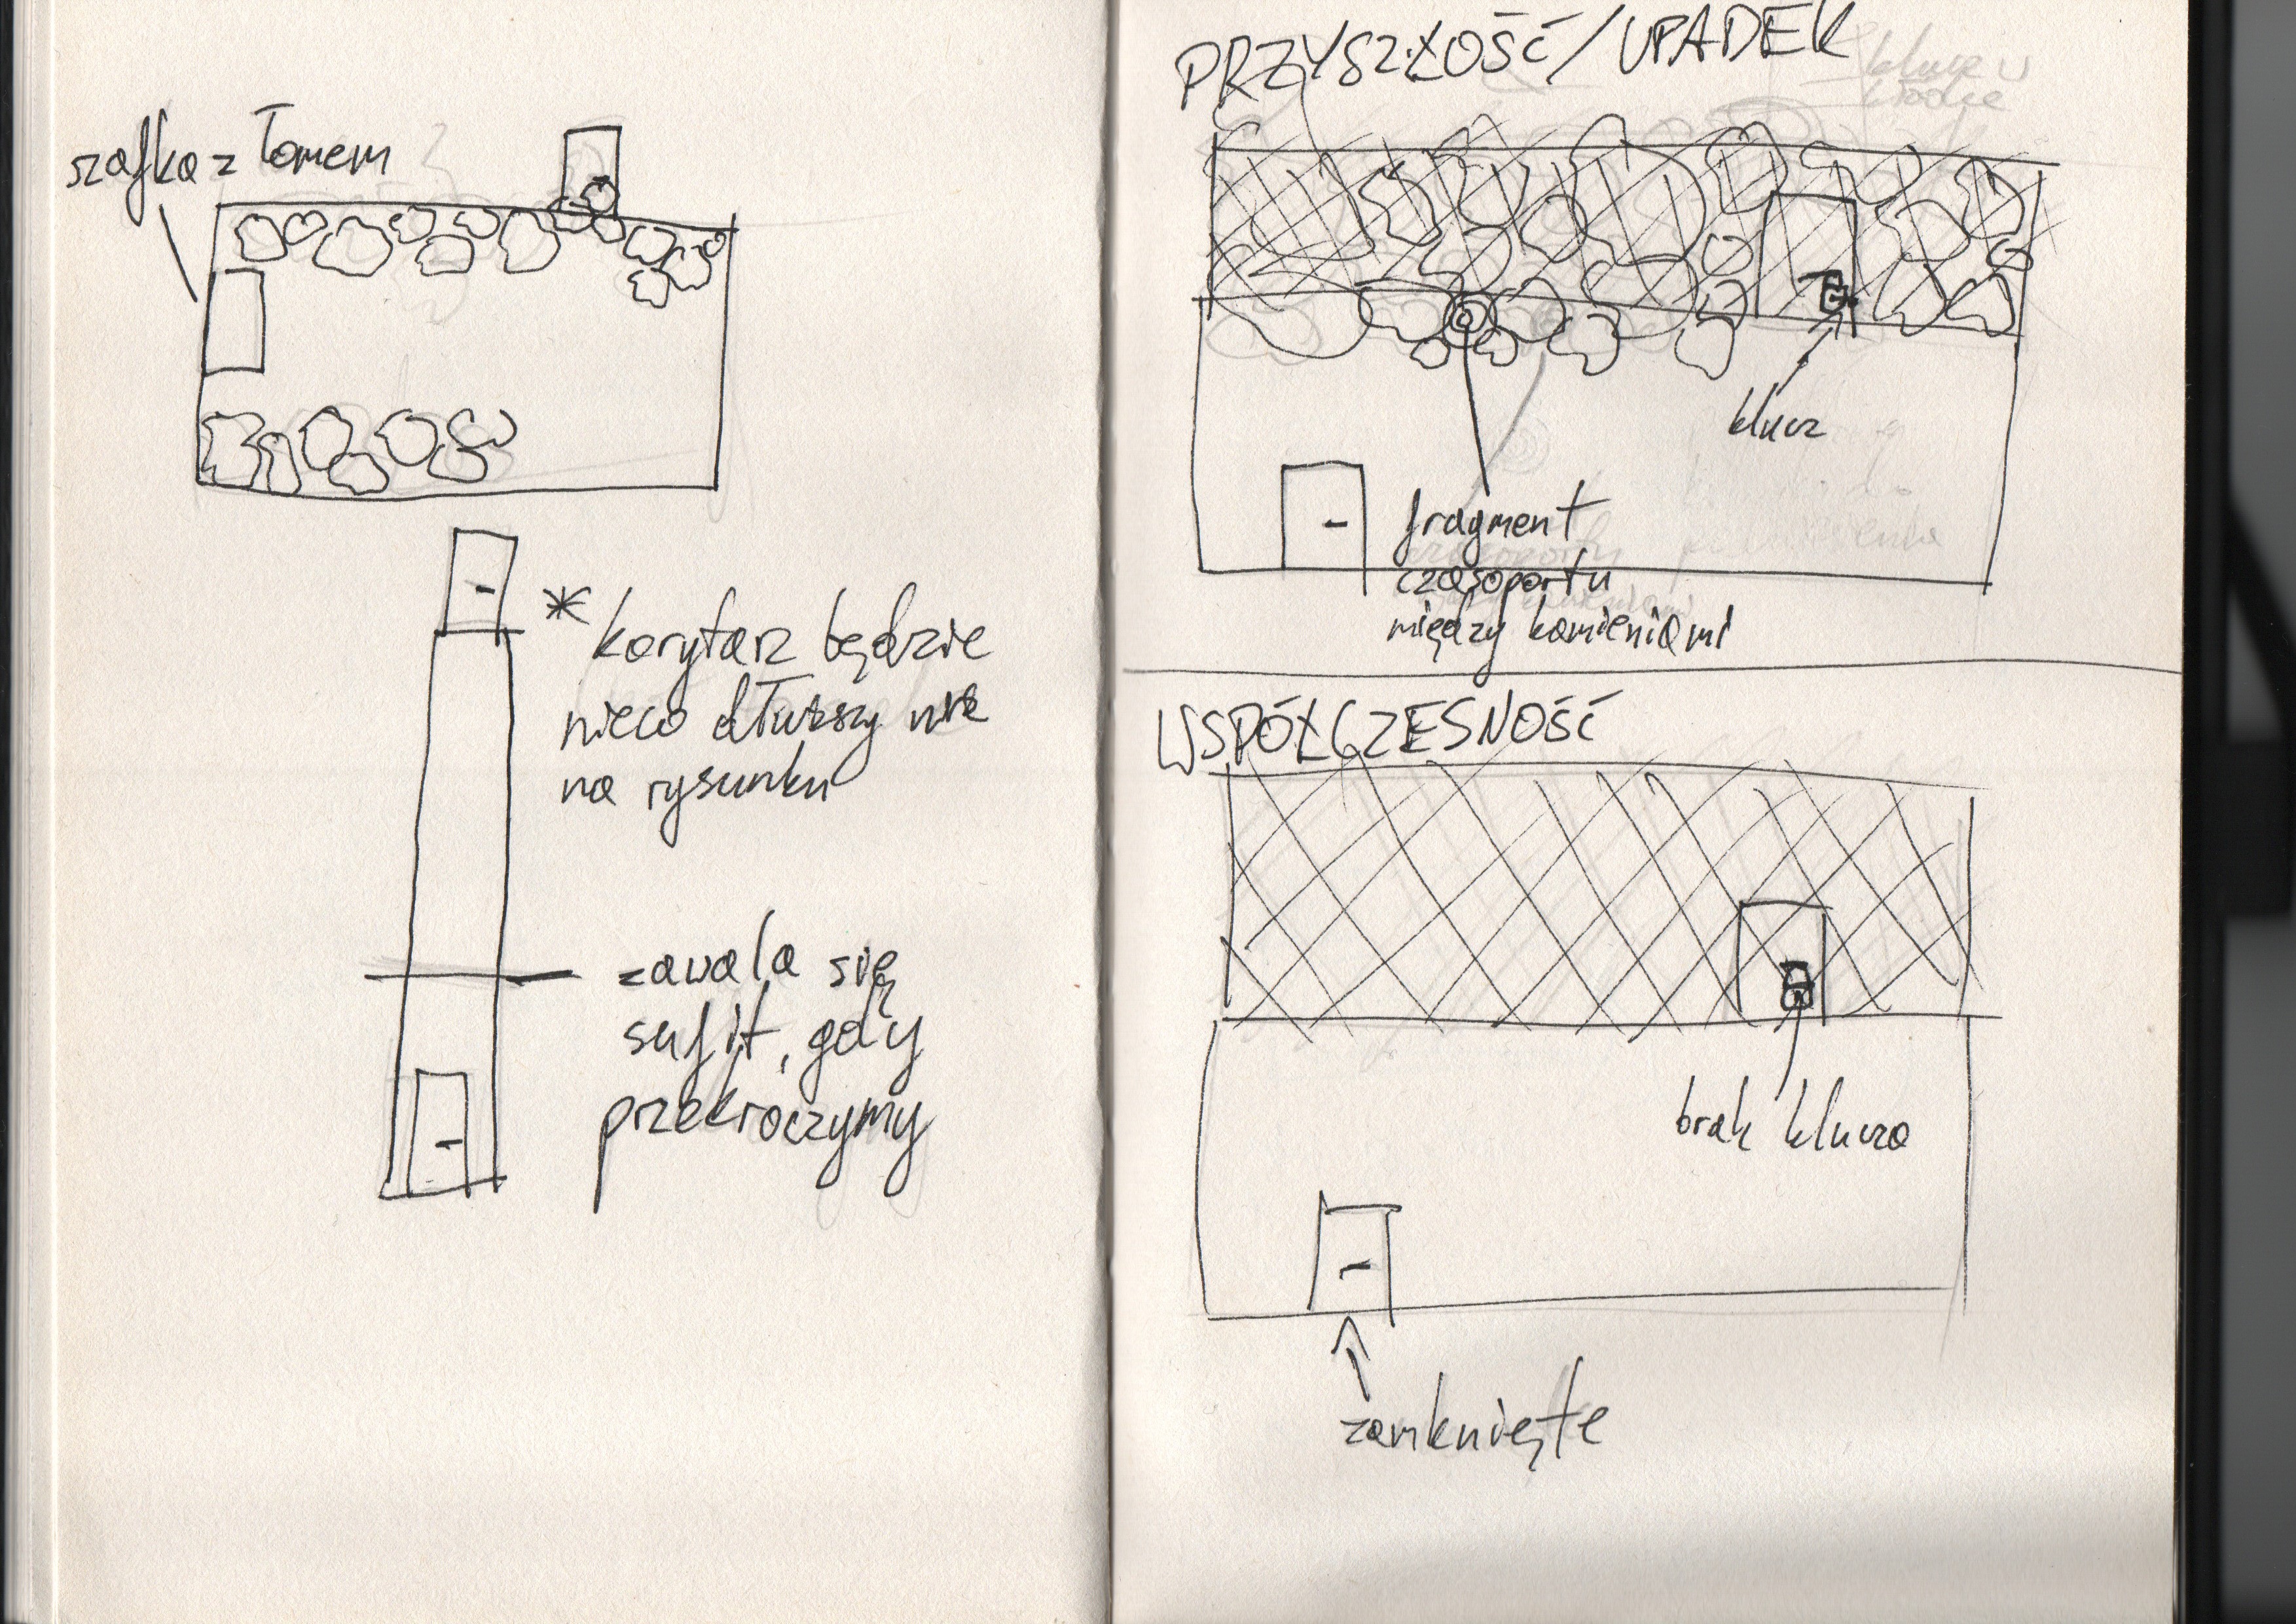 szafka z łomem
* korytarz będzie
nieco dłuższy niż
na rysunku
zawala się
sufit, gdy
przekroczymy
PRZYSZŁOŚĆ/UPADEK
klucz
fragment
czasoportu
między kamieniami
WSPÓŁCZESNOŚĆ
brak klucza
zamknięte